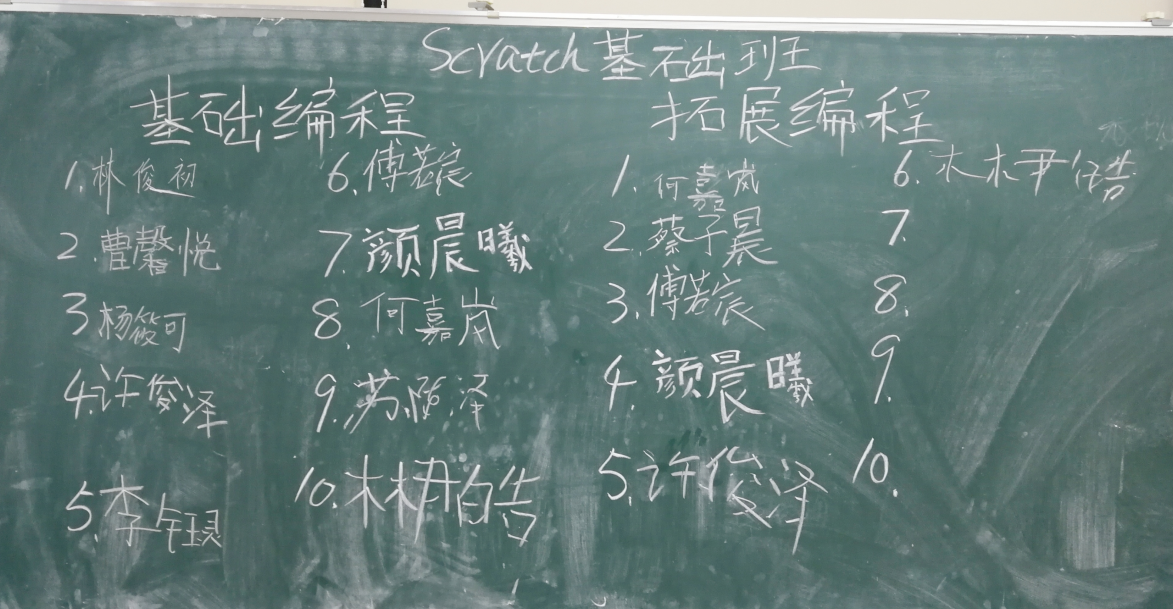 Scratch基础班
基础编程
1.林俊初
2.曹馨悦
3 杨筱可
4.许俊泽
5.李
6.傅若宸
7.颜晨曦
8.何嘉岚
9.苏陵泽
10.林尹皓
拓展编程
1.何嘉岚
2.蔡子晨
3.傅若宸
4.颜晨曦
5.许俊泽
6.林尹
7.
8.
9.
10.